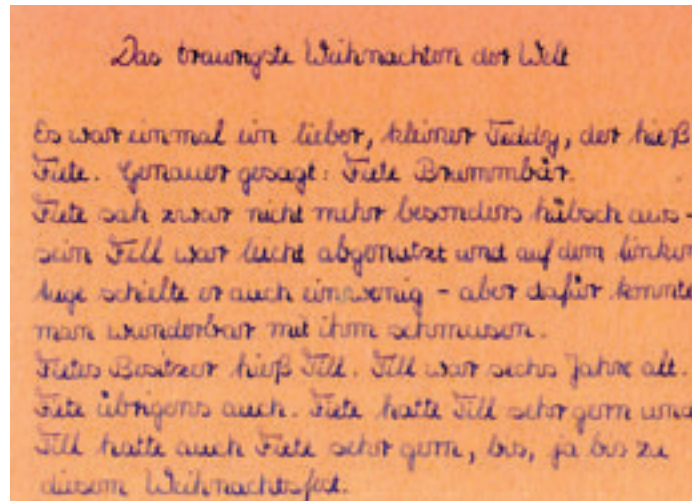 Das traurigste Weihnachten der Welt
Es war einmal ein lieber, kleiner Teddy, der hieß
Fiete. Genauer gesagt: Fiete Brummbär.
Fiete sah zwar nicht mehr besonders hübsch aus -
sein Fell war leicht abgenutzt und auf dem linken
Auge schielte er auch ein wenig - aber dafür konnte
man wunderbar mit ihm schmusen.
Fietes Besitzer hieß Till. Till war sechs Jahre alt.
Fiete übrigens auch. Fiete hatte Till sehr gern und
Till hatte auch Fiete sehr gern, bis, ja bis zu
diesem Weihnachtsfest.